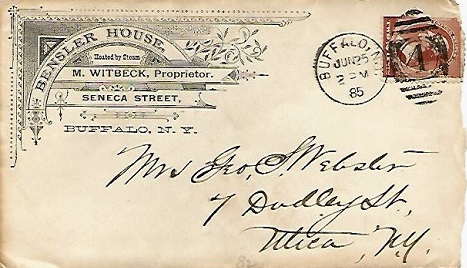 BENSLER HOUSE,
Heated by Steam
M. WITBECK, Proprietor.
SENECA STREET,
BUFFALO, N. Y.
BUFFALO, N.Y.
JUN 25
2 PM
85
Mrs Geo, S. Webster
7 Dudley St,
Utica, N.Y.
82